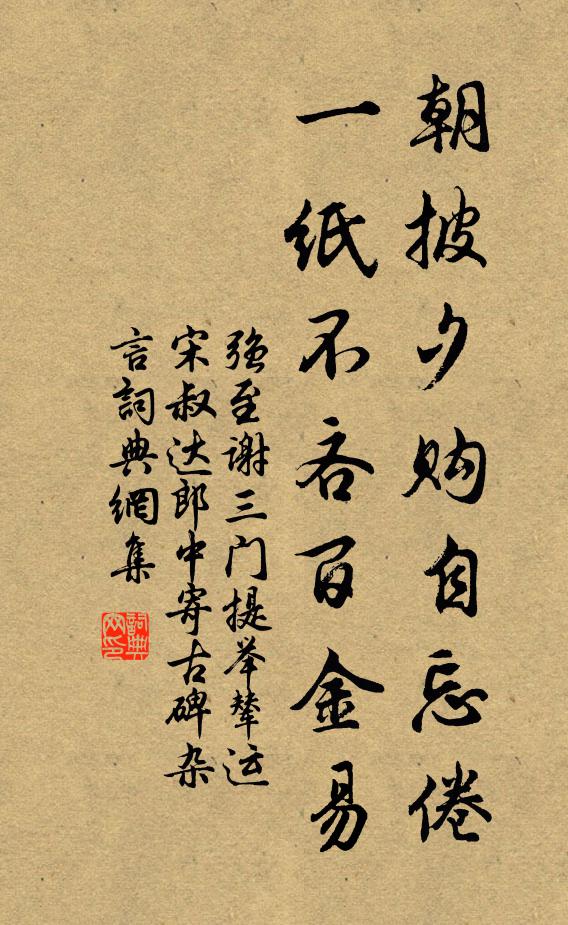 朝披夕购自忘倦
一纸不吝百金易
强至谢三门提举辇运
宋叔达郎中寄古碑杂
言詞典網集
詞典
网印